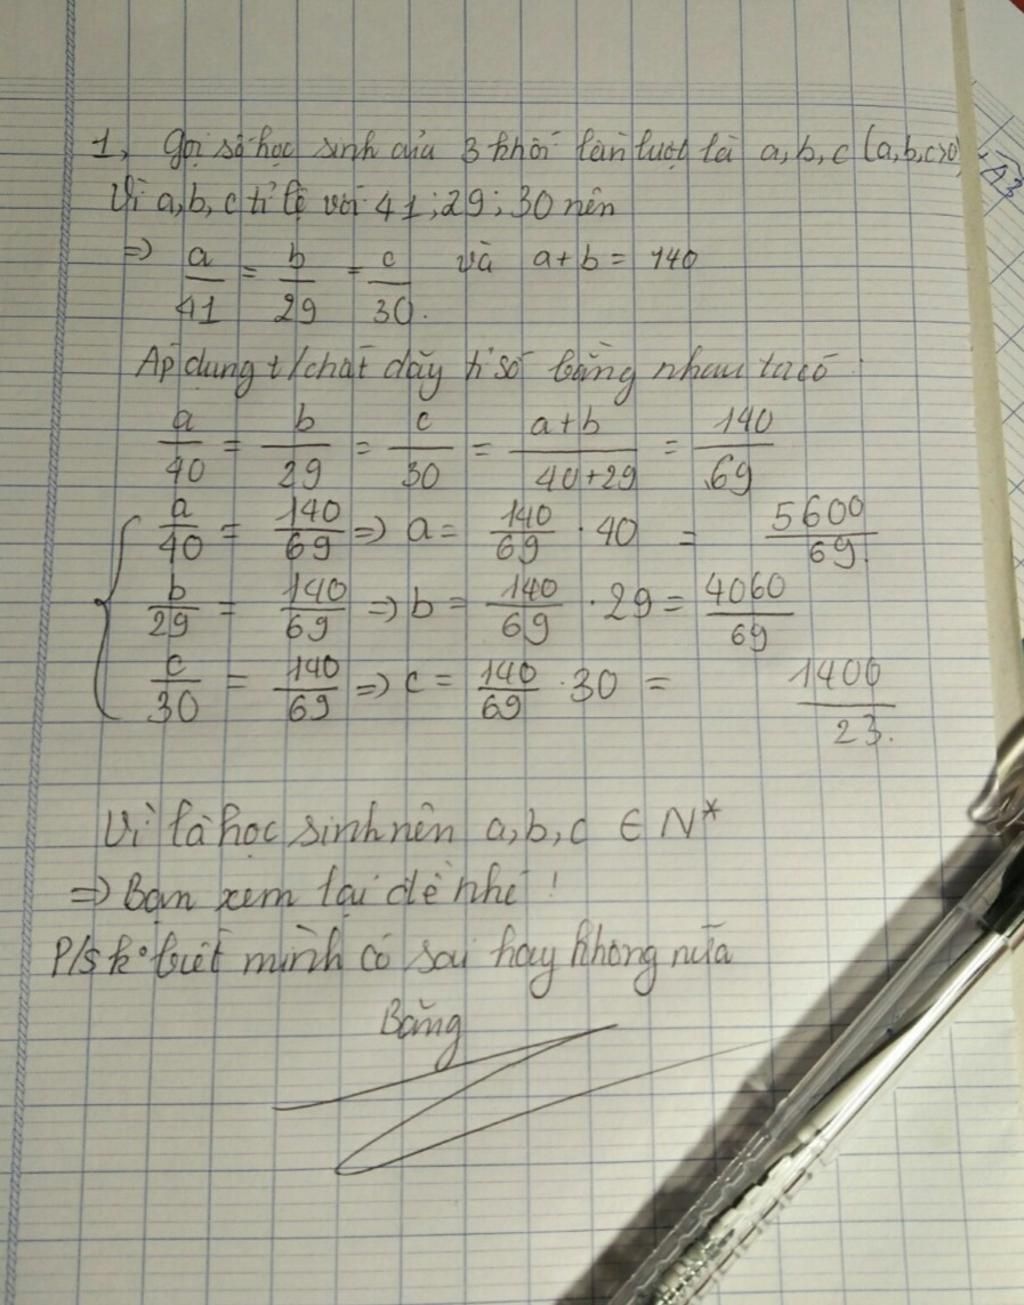 1, Gọi số học sinh của 3 khối lần lượt là a, b, c (a,b,c>0)
Vì a,b,c tỉ lệ với 41; 29; 30 nên
=> a/41 = b/29 = c/30. và a+b = 140
Áp dụng t/chất dãy tỉ số bằng nhau ta có
a/40 = b/29 = c/30 = a+b/40+29 = 140/69
a/40 = 140/69 => a = 140/69 . 40 = 5600/69
b/29 = 140/69 => b = 140/69 . 29 = 4060/69
c/30 = 140/69 => c = 140/69 . 30 = 1400/23.
Vì là học sinh nên a,b,c ∈ N*
=> Bạn xem lại đề nhé!
P/s k° biết mình có sai hay không nữa
Băng